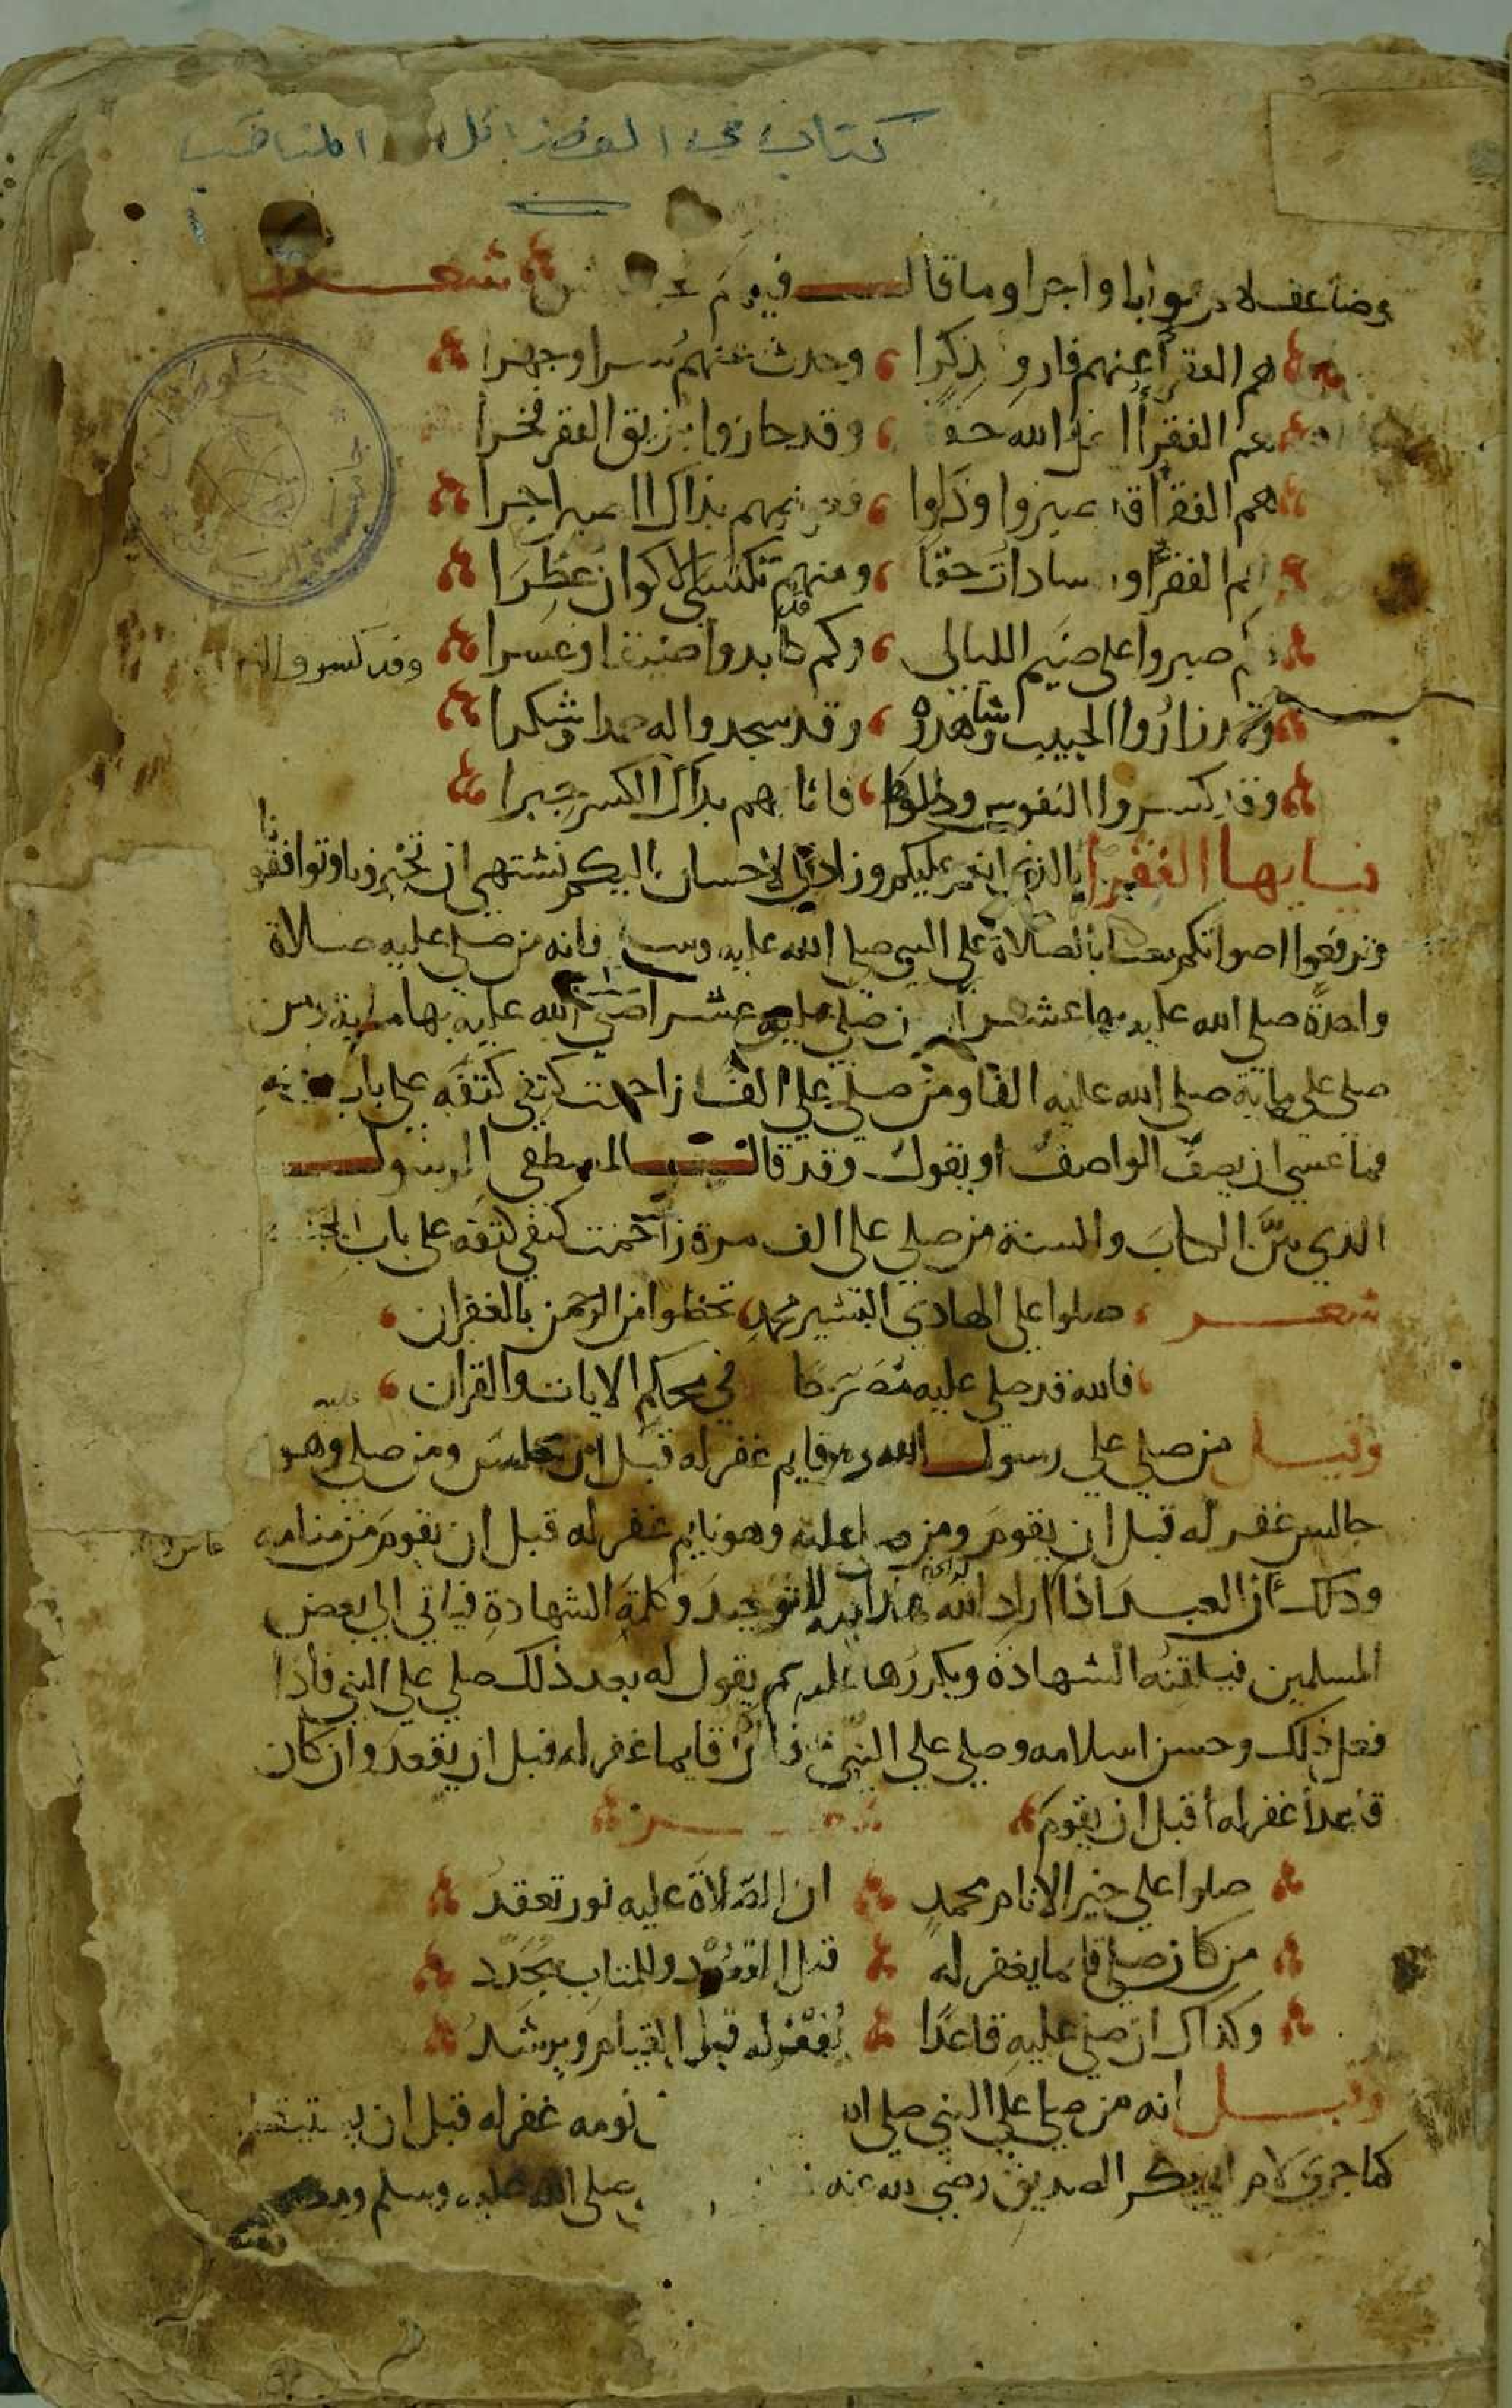 كتاب في الفضائل المناقب
وضاعف لا در ثوابا واجرا وما قال فيهم شعر
هم الفقرأ عنهم فارو ذكرا وحدث عنهم سرا وجهرا
هم الفقرأ الله حقا وقد حازوا بزيق الفقر فخرا
هم الفقرأ وذلوا بذاك اجرا
الفقرأ سادات حقا ومنهم تكتسي الاكوان عطرا
صبروا على ضيم الليالي وكم قد كابدوا ضيقا وعسرا
وقد كسروا
وقد زاروا الحبيب وشاهدوه وقد سجدوا له حمدا وشكرا
وقد كسروا النفوس وذللوها فاثابهم بذاك الكسر جبرا
فيا ايها الفقرا بالذي انعم عليكم وزاد في الاحسان اليكم نشتهي ان تجبرونا وتوافقونا
وترفعوا اصواتكم معنا بالصلاة على النبي صلى الله عليه وسلم فانه من صلى عليه صلاة
واحدة صلى الله عليه بها عشرا ومن صلى عليه عشرا صلى الله عليه بها ماية ومن
صلى على ماية صلى الله عليه الفا ومن صلى على الف زاحمت كتفي كتفه على باب
فما عسى ان يصف الواصف او يقول وقد قال المصطفى الرسول
الذي بين الكتاب والسنة من صلى على الف مرة زاحمت كتفي كتفه على باب الجنة
شعر صلوا على الهادي البشير محمد تحظوا من الرحمن بالغفران
فالله قد صلى عليه مصرحا في محكم الايات والقران
وقيل من صلى على رسول الله وهو قايم غفر له قبل ان يجلس ومن صلى وهو
جالس غفر له قبل ان يقوم ومن صلى عليه وهو نايم غفر له قبل ان يقوم من منامه
وذلك ان العبد اذا اراد الله هدايته للتوحيد وكلمة الشهادة فياتي الى بعض
المسلمين فيلقنه الشهادة ويكررها عليه ثم يقول له بعد ذلك صلي على النبي فاذا
فعل ذلك وحسن اسلامه وصلى على النبي فان كان قايما غفر له قبل ان يقعد وان كان
قاعدا غفر له قبل ان يقوم شعر
صلوا على خير الانام محمد ان الصلاة عليه نور تعقد
من كان صلى قايما يغفر له قبل القعود وللمتاب يجدد
وكذاك ان صلى عليه قاعدا يغفر له قبل القيام ويرشد
وقيل انه من صلى على النبي صلى الله نومه غفر له قبل ان يستيقظ
كما جرى لام ابي بكر الصديق رضي الله عنه صلى الله عليه وسلم